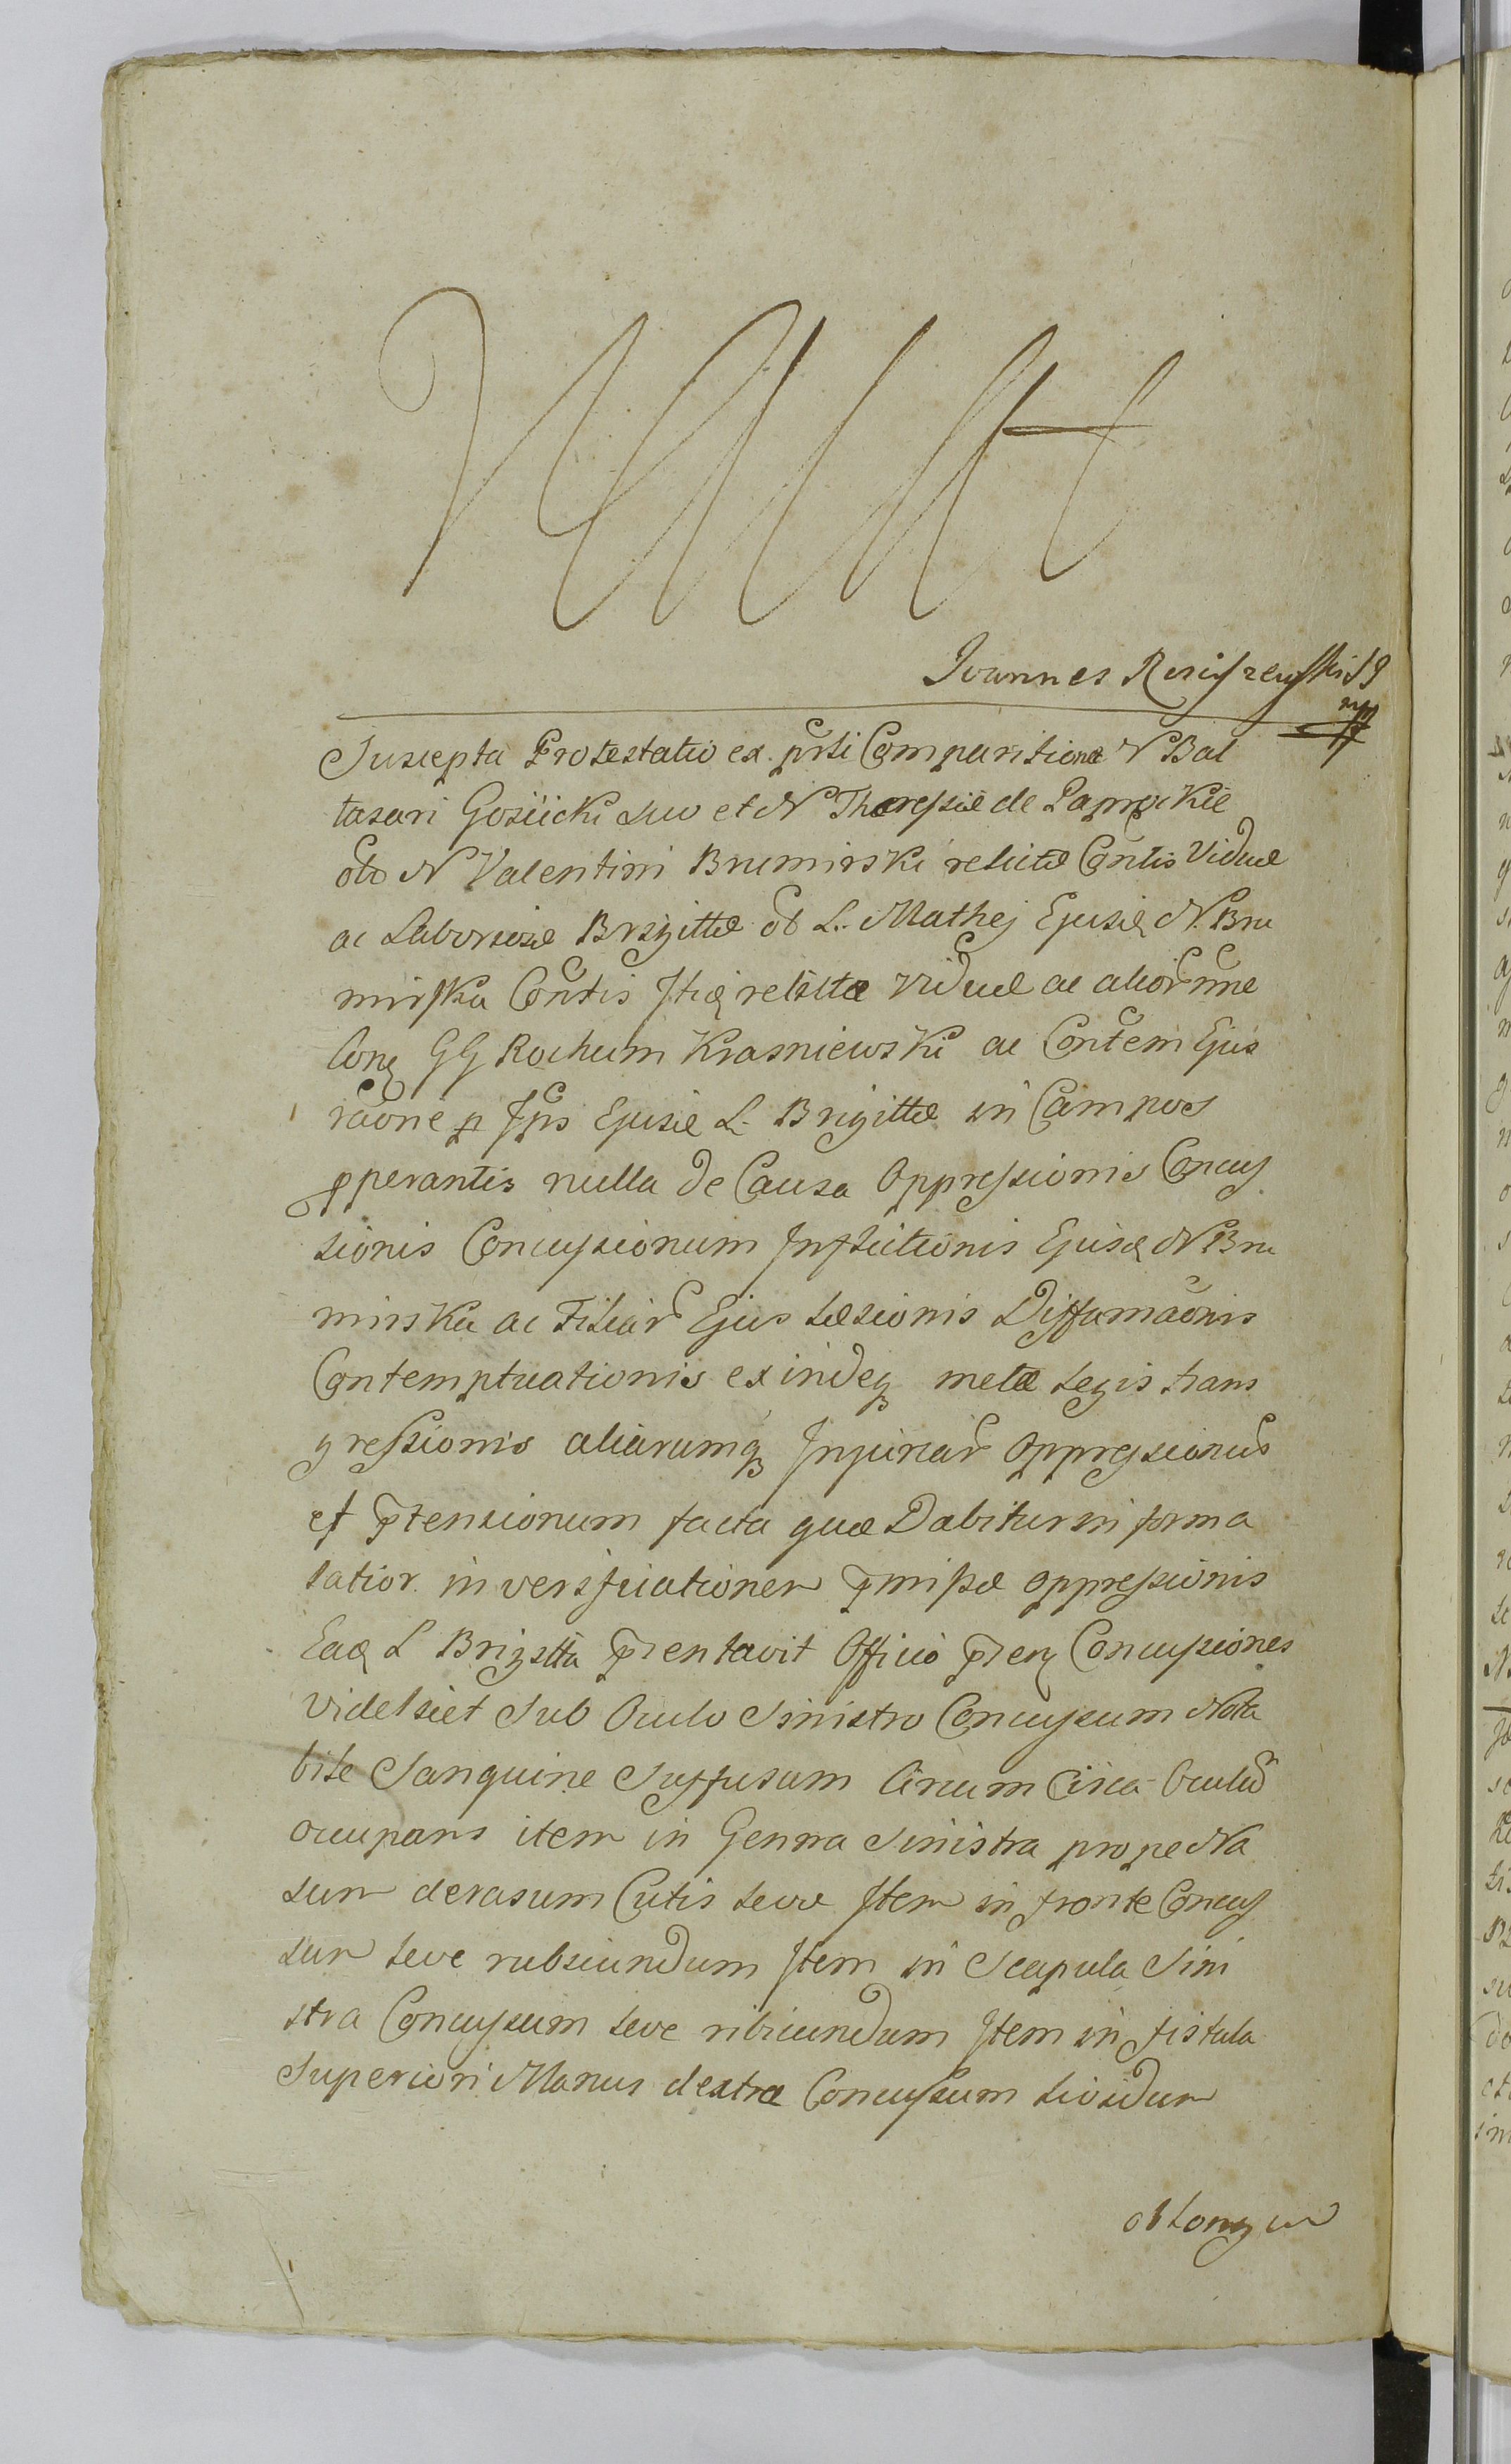 Joannes
Suscepta Protestatio ex prsti Comparitione N Bal
tasari Gosiicki suo et N Theressiæ de Paprockie
oló N Valentini Brumirski relictæ Contis Viduæ
ac Laboriosæ Brigittæ ol L. Mathej Ejusdē N. Bru
mirska Contis Itidē relictæ Viduæ ac alior nne
Conq GG Rochum Krasniewski ac Contem Ejus
rãone p Ips Ejusdē L. Brigittæ in Campos
pperantis nulla de Causa Oppressionis Concus
sionis Concussionum Inflictionis Ejusdē N Bru
mirska ac Filiar Ejus læsionis Diffamãonis
Contemptuationis exindeq metæ legis trans
gressionis aliarumq Injuriar Oppressionū
et ptensionum facta quæ Dabitur in forma
latior. in verificationem pmissæ oppressionis
Eadē L Brigitta pzentavit Officio pzenq Concussiones
videlicet Sub Oculo Sinistro Concussum Nota
bile Sanguine Suffusum Circum Circa Oculū
occupans item in Genna Sinistra prope Na
sum derasum Cutis leve Item in fronte Concus
sum leve rubicundum Item in Scapula Sini
stra Concussum leve ribicundum Item in fistula
Superiori Manus dextræ Concussum lividum
oblongum